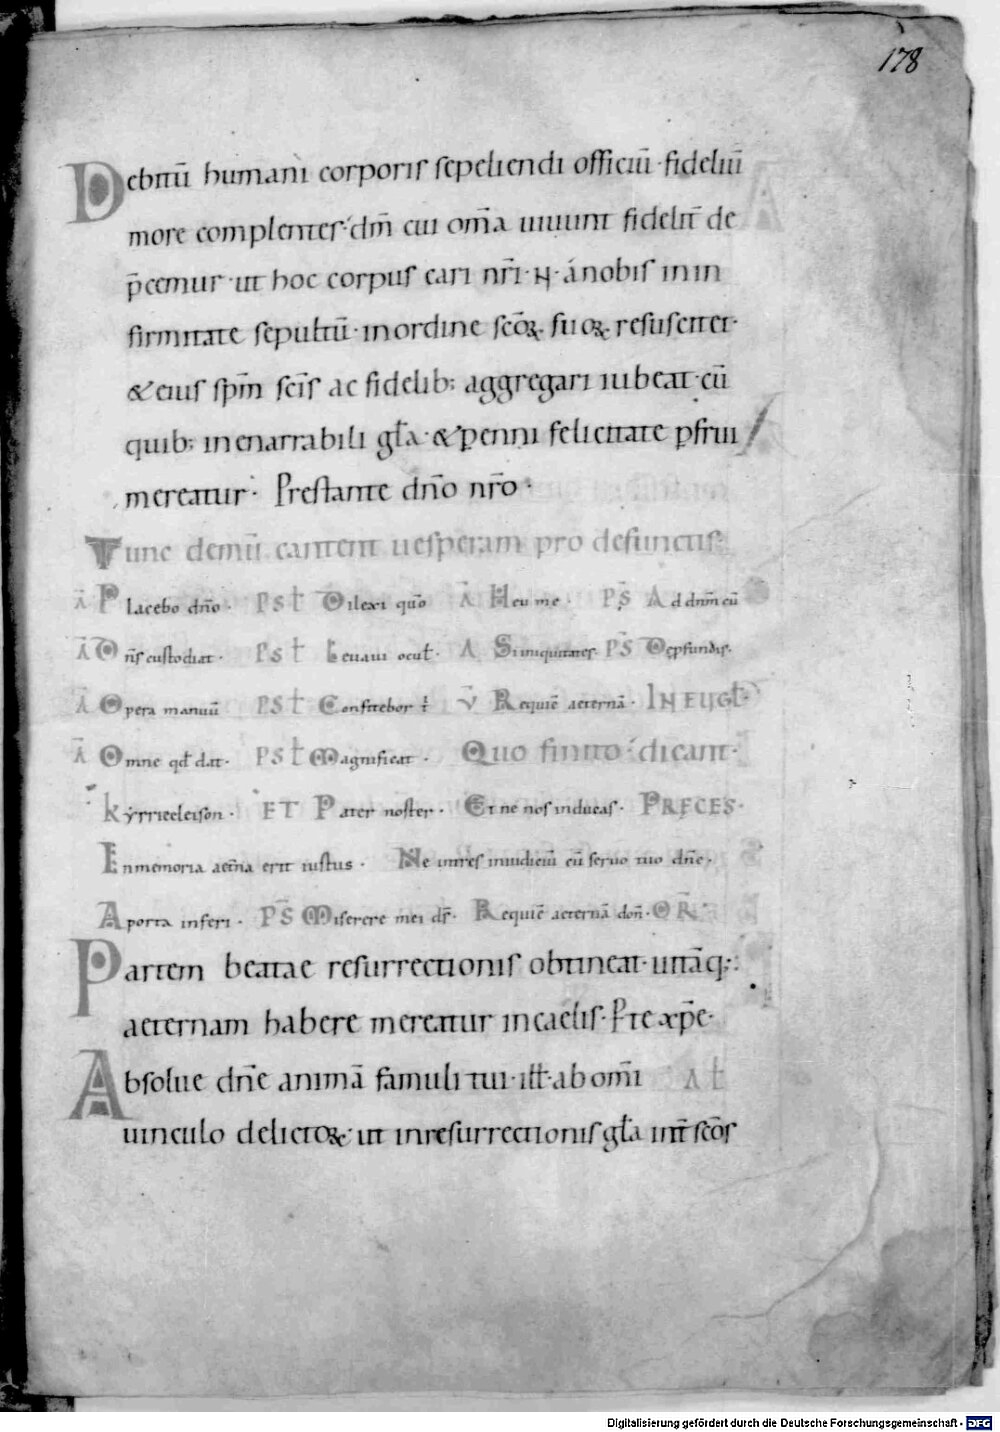 178
Debitū humani corporis sepeliendi officiū · fideliū
more complentes · dm̄ cui om̄a uiuunt fidelit̄ de
p̄cemur · ut hoc corpus cari nr̄i · N · á nobis in in
firmitate sepultū · in ordine sc̄oꝝ suoꝝ resuscitet ·
& eius sp̄m sc̄is ac fidelib; aggregari iubeat · cū
quib; inenarrabili gl̄a · & pęnni felicitate ꝑfrui
mereatur · Prestante dn̄o nr̄o ·
Tunc demū cantent uesperam pro defunctis
Ā Placebo dn̄o · PSŁ Dilexi qūo Ā Heu me · PS̄ Ad dnm̄ cū
Ā Dn̄s custodiat · PSŁ Leuaui ocuł · A Si iniquitates PS̄ De ꝓfundis ·
Ā Opera manuū PSŁ Confitebor ƚ V̄ Requiē aeternā · IN EUGŁ ·
Ā Omne qđ dat · PSŁ Magnificat · Quo finito · dicant ·
kẏrrieeleison · ET Pater noster · Et ne nos inducas · PRECES ·
In memoria aet̄na erit iustus · Ne intres in iudiciū cū seruo tuo dn̄e ·
A porta inferi · PS̄ Miserere mei ds̄ · Requiē aeternā don̄ · OR̄
Partem beatae resurrectionis obtineat · uitāq;
aeternam habere mereatur in caelis · P̄ te xp̄e ·
Absolue dn̄e animā famuli tui · ill̄ · ab om̄i AŁ
uinculo delictoꝝ · ut in resurrectionis gl̄a int̄ sc̄os
Digitalisierung gefördert durch die Deutsche Forschungsgemeinschaft - DFG